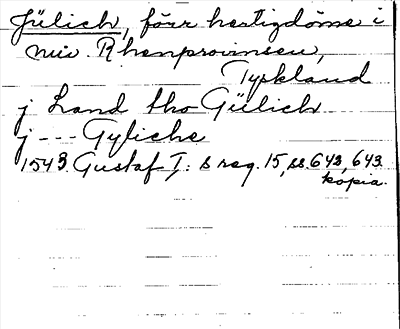 Jülich, förr hertigdöme i
nuv. Rhenprovinsen,
Tyskland
j Land tho Gülich
j --- Gyliche
1543 Gustaf I:s reg. 15, ss. 643, 643
kopia.